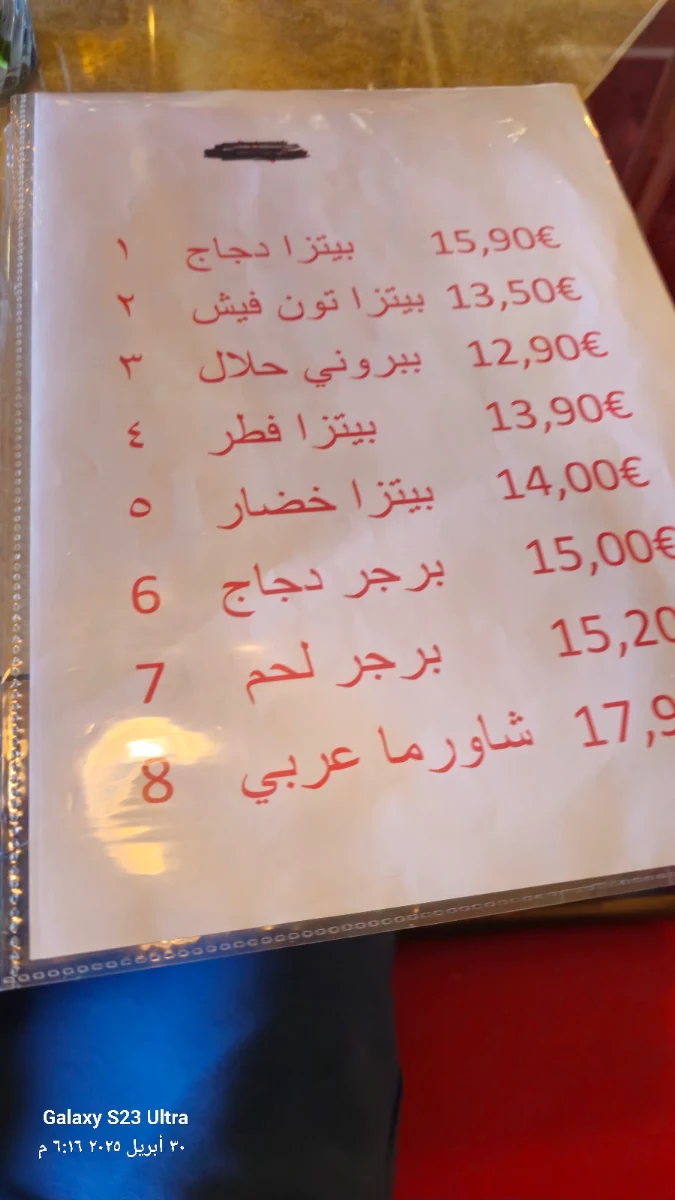 ١ بيتزا دجاج 15,90€
٢ بيتزا تون فيش 13,50€
٣ ببروني حلال 12,90€
٤ بيتزا فطر 13,90€
٥ بيتزا خضار 14,00€
6 برجر دجاج 15,00€
7 برجر لحم 15,20
8 شاورما عربي 17,9
Galaxy S23 Ultra
٣٠ أبريل ٢٠٢٥ ٦:١٦ م